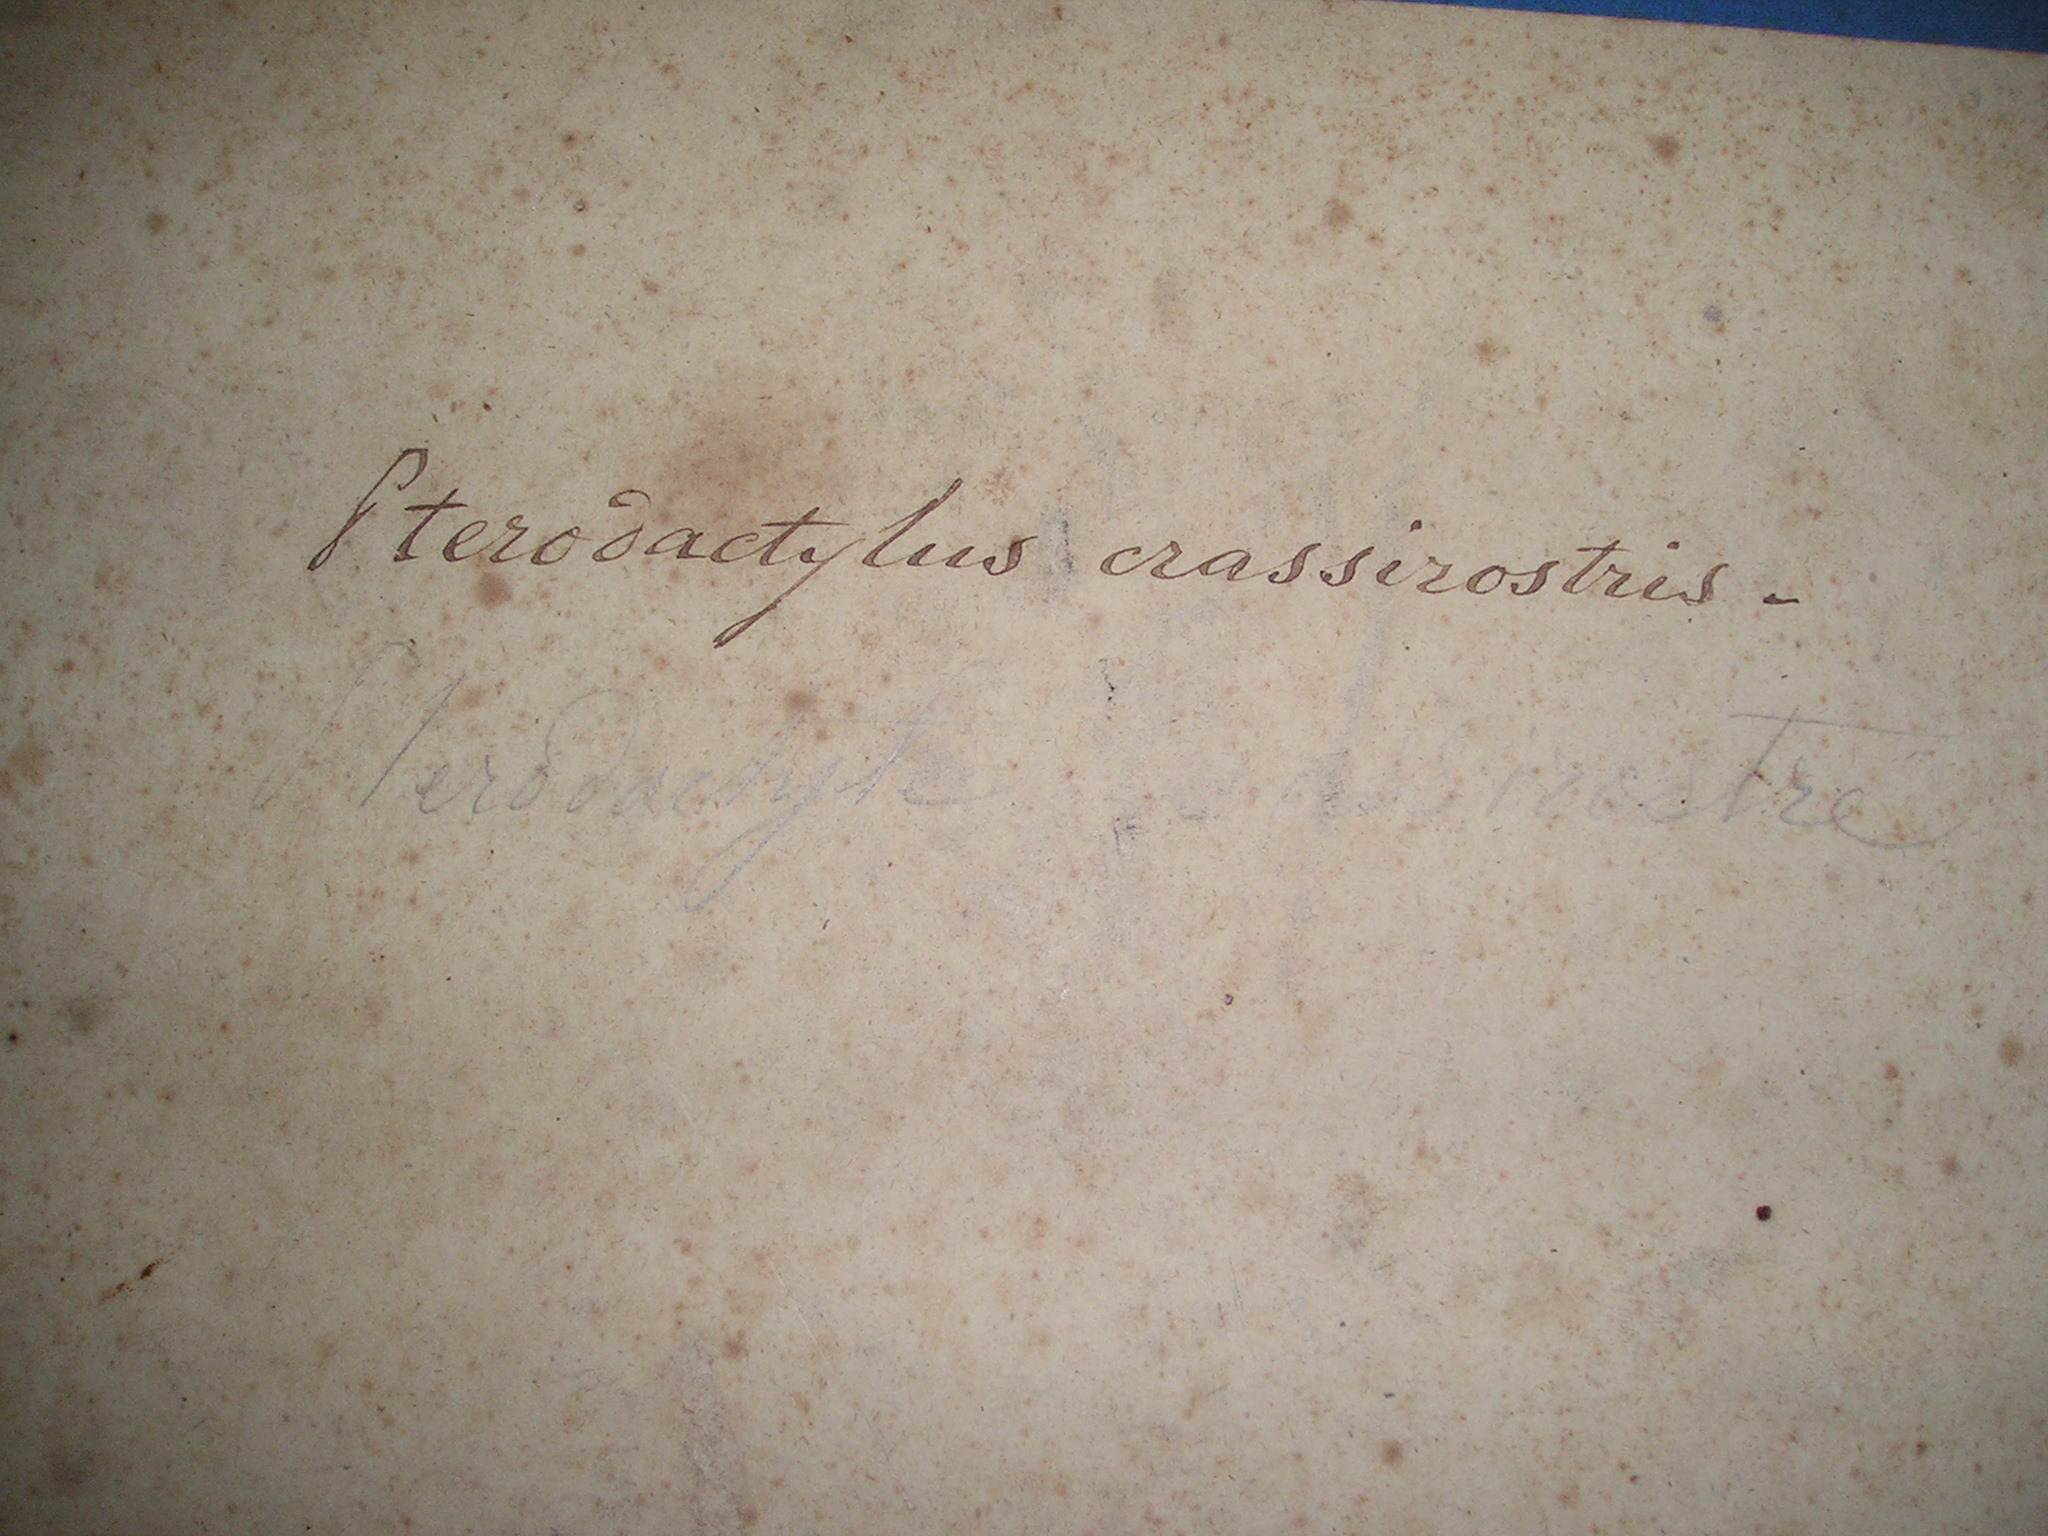 Pterodactylus crassirostris.
Pterodactyle